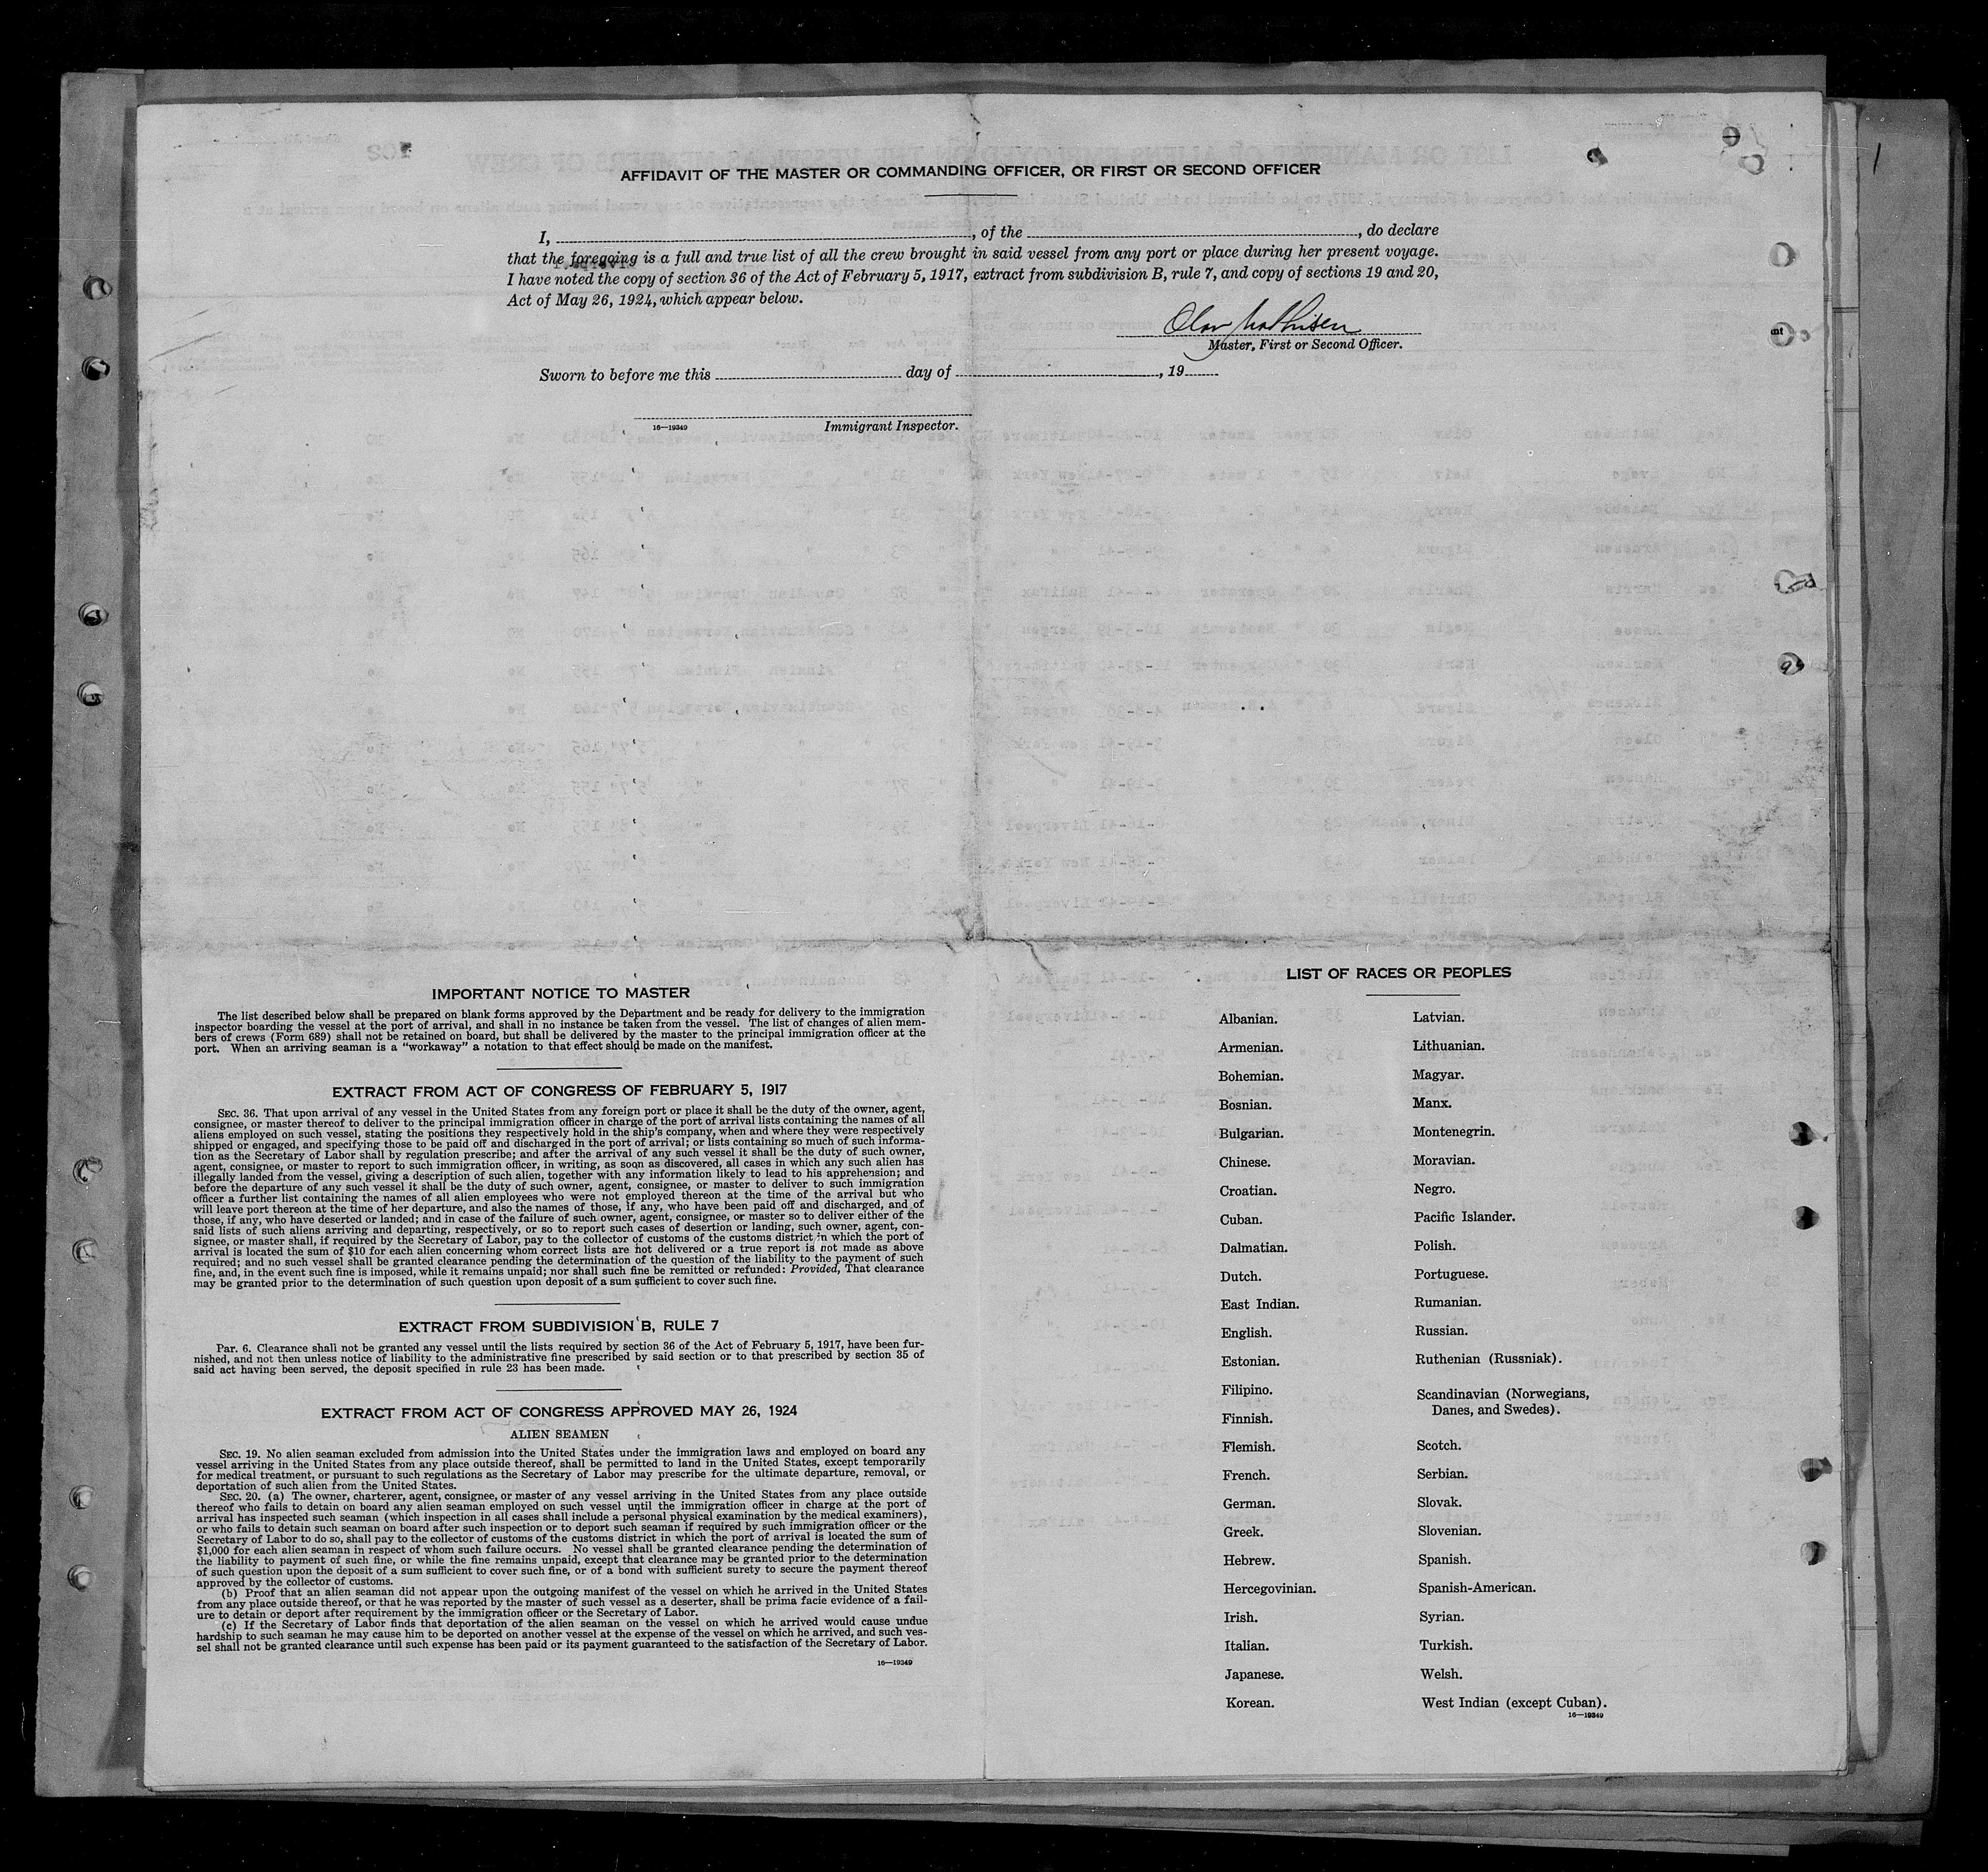 AFFIDAVIT OF THE MASTER OR COMMANDING OFFICER, OR FIRST OR SECOND OFFICER
I, , of the , do declare
that the foregoing is a full and true list of all the crew brought in said vessel from any port or place during her present voyage.
I have noted the copy of section 36 of the Act of February 5, 1917, extract from subdivision B, rule 7, and copy of sections 19 and 20,
Act of May 26, 1924, which appear below.
Olav Mathisen
Master, First or Second Officer.
Sworn to before me this day of , 19
16—19349 Immigrant Inspector.
IMPORTANT NOTICE TO MASTER
The list described below shall be prepared on blank forms approved by the Department and be ready for delivery to the immigration
inspector boarding the vessel at the port of arrival, and shall in no instance be taken from the vessel. The list of changes of alien mem-
bers of crews (Form 689) shall not be retained on board, but shall be delivered by the master to the principal immigration officer at the
port. When an arriving seaman is a "workaway" a notation to that effect should be made on the manifest.
EXTRACT FROM ACT OF CONGRESS OF FEBRUARY 5, 1917
SEC. 36. That upon arrival of any vessel in the United States from any foreign port or place it shall be the duty of the owner, agent,
consignee, or master thereof to deliver to the principal immigration officer in charge of the port of arrival lists containing the names of all
aliens employed on such vessel, stating the positions they respectively hold in the ship's company, when and where they were respectively
shipped or engaged, and specifying those to be paid off and discharged in the port of arrival; or lists containing so much of such informa-
tion as the Secretary of Labor shall by regulation prescribe; and after the arrival of any such vessel it shall be the duty of such owner,
agent, consignee, or master to report to such immigration officer, in writing, as soon as discovered, all cases in which any such alien has
illegally landed from the vessel, giving a description of such alien, together with any information likely to lead to his apprehension; and
before the departure of any such vessel it shall be the duty of such owner, agent, consignee, or master to deliver to such immigration
officer a further list containing the names of all alien employees who were not employed thereon at the time of the arrival but who
will leave port thereon at the time of her departure, and also the names of those, if any, who have been paid off and discharged, and of
those, if any, who have deserted or landed; and in case of the failure of such owner, agent, consignee, or master so to deliver either of the
said lists of such aliens arriving and departing, respectively, or so to report such cases of desertion or landing, such owner, agent, con-
signee, or master shall, if required by the Secretary of Labor, pay to the collector of customs of the customs district in which the port of
arrival is located the sum of $10 for each alien concerning whom correct lists are not delivered or a true report is not made as above
required; and no such vessel shall be granted clearance pending the determination of the question of the liability to the payment of such
fine, and, in the event such fine is imposed, while it remains unpaid; nor shall such fine be remitted or refunded: Provided, That clearance
may be granted prior to the determination of such question upon deposit of a sum sufficient to cover such fine.
EXTRACT FROM SUBDIVISION B, RULE 7
Par. 6. Clearance shall not be granted any vessel until the lists required by section 36 of the Act of February 5, 1917, have been fur-
nished, and not then unless notice of liability to the administrative fine prescribed by said section or to that prescribed by section 35 of
said act having been served, the deposit specified in rule 23 has been made.
EXTRACT FROM ACT OF CONGRESS APPROVED MAY 26, 1924
ALIEN SEAMEN
SEC. 19. No alien seaman excluded from admission into the United States under the immigration laws and employed on board any
vessel arriving in the United States from any place outside thereof, shall be permitted to land in the United States, except temporarily
for medical treatment, or pursuant to such regulations as the Secretary of Labor may prescribe for the ultimate departure, removal, or
deportation of such alien from the United States.
SEC. 20. (a) The owner, charterer, agent, consignee, or master of any vessel arriving in the United States from any place outside
thereof who fails to detain on board any alien seaman employed on such vessel until the immigration officer in charge at the port of
arrival has inspected such seaman (which inspection in all cases shall include a personal physical examination by the medical examiners),
or who fails to detain such seaman on board after such inspection or to deport such seaman if required by such immigration officer or the
Secretary of Labor to do so, shall pay to the collector of customs of the customs district in which the port of arrival is located the sum of
$1,000 for each alien seaman in respect of whom such failure occurs. No vessel shall be granted clearance pending the determination of
the liability to payment of such fine, or while the fine remains unpaid, except that clearance may be granted prior to the determination
of such question upon the deposit of a sum sufficient to cover such fine, or of a bond with sufficient surety to secure the payment thereof
approved by the collector of customs.
(b) Proof that an alien seaman did not appear upon the outgoing manifest of the vessel on which he arrived in the United States
from any place outside thereof, or that he was reported by the master of such vessel as a deserter, shall be prima facie evidence of a fail-
ure to detain or deport after requirement by the immigration officer or the Secretary of Labor.
(c) If the Secretary of Labor finds that deportation of the alien seaman on the vessel on which he arrived would cause undue
hardship to such seaman he may cause him to be deported on another vessel at the expense of the vessel on which he arrived, and such ves-
sel shall not be granted clearance until such expense has been paid or its payment guaranteed to the satisfaction of the Secretary of Labor.
16—19349
LIST OF RACES OR PEOPLES
Albanian.
Armenian.
Bohemian.
Bosnian.
Bulgarian.
Chinese.
Croatian.
Cuban.
Dalmatian.
Dutch.
East Indian.
English.
Estonian.
Filipino.
Finnish.
Flemish.
French.
German.
Greek.
Hebrew.
Hercegovinian.
Irish.
Italian.
Japanese.
Korean.
Latvian.
Lithuanian.
Magyar.
Manx.
Montenegrin.
Moravian.
Negro.
Pacific Islander.
Polish.
Portuguese.
Rumanian.
Russian.
Ruthenian (Russniak).
Scandinavian (Norwegians,
Danes, and Swedes).
Scotch.
Serbian.
Slovak.
Slovenian.
Spanish.
Spanish-American.
Syrian.
Turkish.
Welsh.
West Indian (except Cuban).
16—19349